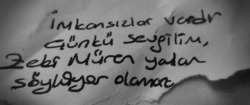 imkansızlar vardır
Çünkü sevgilim,
Zeki Müren yalan
söylüyor olamaz.